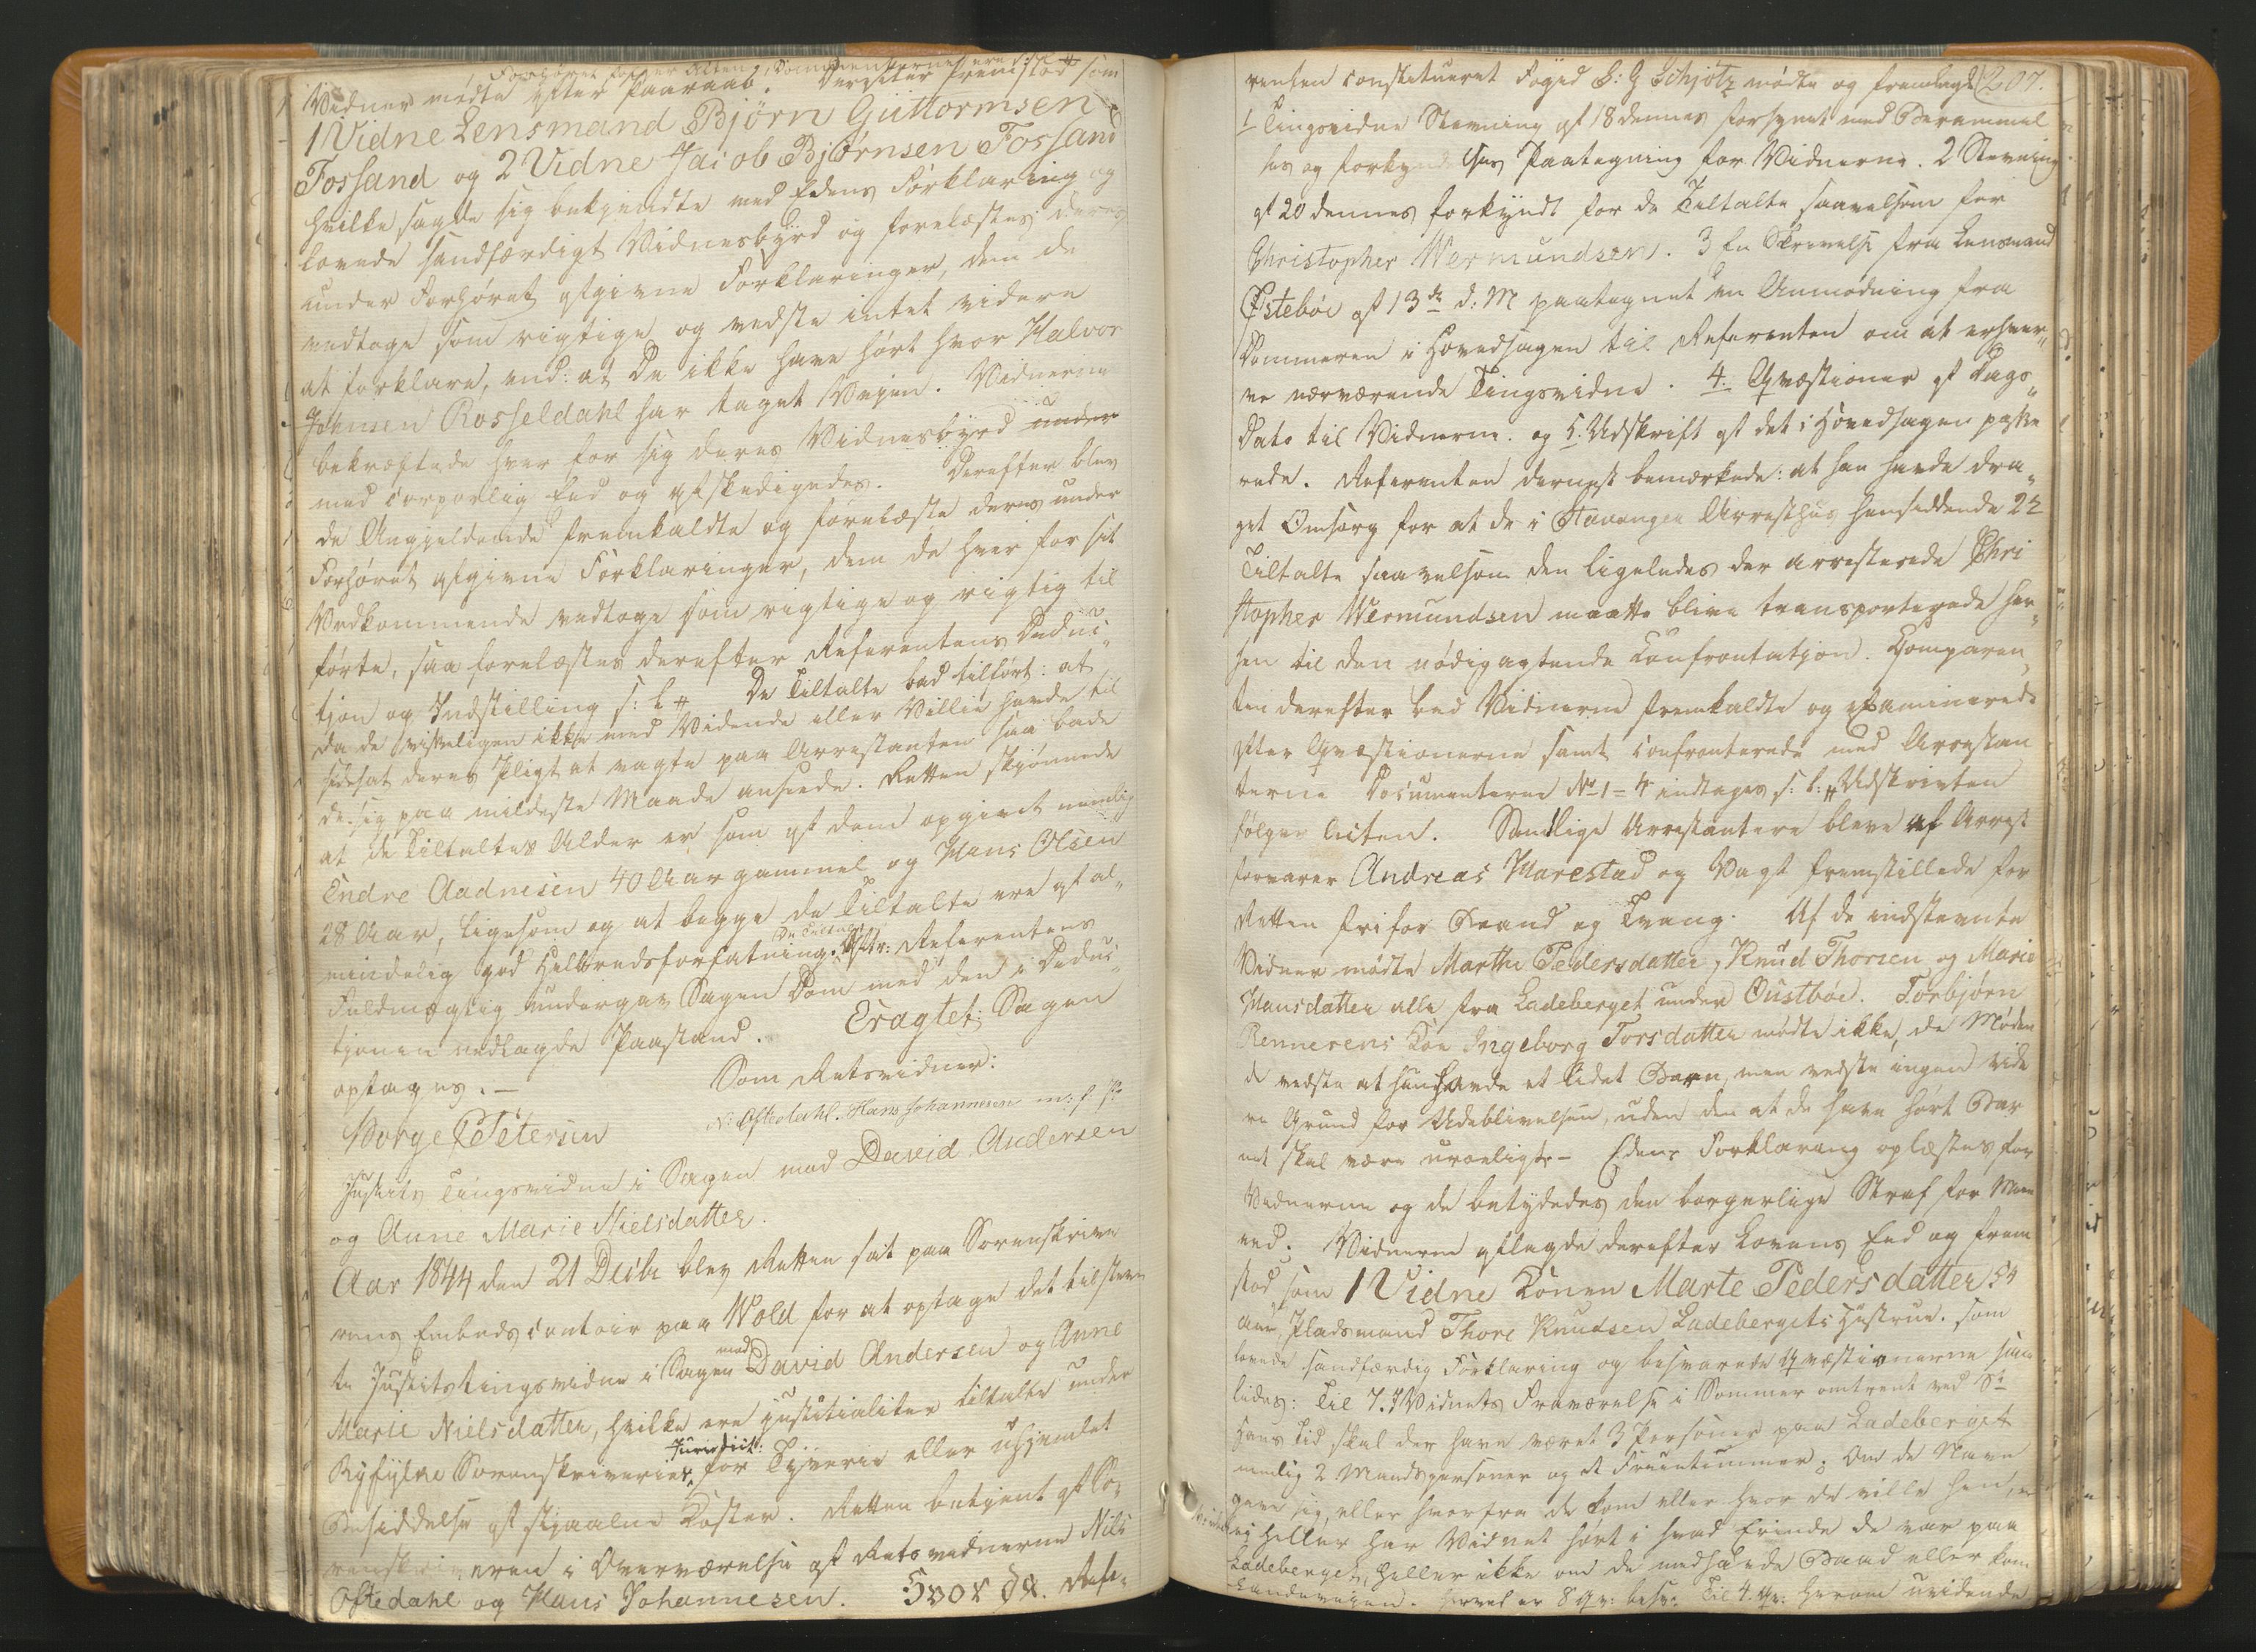 Forhøret følger Acten, Documenterne ere d:
Vidner mødte efter Paaraab. Derefter fremstod som
1 Vidne Lensmand Bjørn Guttormsen
Fossand og 2 Vidne Jacob Bjørnsen Fossand
hvilke sagde sig bekjendte med Edens Forklaring og
lovede sandfærdigt Vidnesbyrd og forelæstes deres
under Forhøret afgivne Forklaringer, dem de
vedtoge som rigtige og vedste intet videre
at forklare, end: at De ikke have hørt hvor Halvor
Johnsen Rosseldahl har taget Veien. Vidnerne
bekræftede hver for sig deres Vidnesbyrd under
med corporlig Eed og afskedigedes. Derefter blev
de Angjeldende fremkaldte og forelæste deres under
Forhøret afgivne Forklaringer, dem de hver for sit
Vedkommende vedtoge som rigtige og rigtig til
førte, saa forelæstes derefter Referentens Deduc¬
tion og Indstilling s: l # De Tiltalte bad tilført: at
da de visseligen ikke med Vidende eller Villie havde til
sidesat deres Pligt at vagte paa Arrestanten saa bade
de sig paa mildeste Maade ansede. Retten skjønnede
at de Tiltaltes Alder er som af dem opgivet nemlig
Endre Aadnesen 40 Aar gammel og Hans Olsen
28 Aar, ligesom og at begge de Tiltalte ere af al¬
mindelig god Helbredsforfatning. Referentens
Fuldmægtig undergav Sagen Dom med den i Deduc¬
tionen nedlagde Paastand. Eragtet: Sagen
optages. –
Som Retsvidner:
Borge Petersen N: Oftedahl. Hans Johannesen m: f P:
Justits Tingsvidne i Sagen mod David Andersen
og Anne Marie Nielsdatter.
Aar 1844 den 21 Decbr blev Retten sat paa Sorenskrive
rens Embeds contoir paa Wold for at optage det tilstevn
te Justitstingsvidne i Sagen mod David Andersen og Anne
Marie Nielsdatter, hvilke ere justitialiter tiltalte under
Ryfylke Sorenskriveries Jurisdict: for Tyverie eller uhjemlet
Besiddelse af stjaalne Koster. Retten betjent af So¬
renskriveren i Overværelse af Retsvidnerne Nils
Oftedahl og Hans Johannesen. Hvor da. Refe¬
rensen constitueret Foged B: G Schjøtz mødte og fremlagde 207.
1 Tingsvidne Stevning af 18 dennes forsynet med Berammel
ses og forkyndelses Paategning for Vidnerne. 2 Stevning
af 20 dennes forkyndt for de Tiltalte saavelsom for
Christopher Wermundsen. 3 En Skrivelse fra Lensmand
Østebøe af 13de d: M paategnet en Anmodning fra
Dommeren i Hovedsagen til Referenten om at erhver¬
ve nærværende Tingsvidne. 4. Qvæstioner af Dags¬
Dato til Vidnerne. og 5. Udskrift af det i Hovedsagen passe
rede. Referenten dernæst bemærkede: at han havde dra¬
get Omsorg for at de i Stavanger Arresthus hensiddende 2de
Tiltalte saavelsom den ligeledes der arresterede Chri
stopher Wermundsen maatte blive transporterede her¬
hen til den nødigagtende Confrontation. Comparen¬
ten derefter bad Vidnerne fremkaldte og examinerede
efter Qvæstionerne samt confronterede med Arrestan
terne Documenterne No 1 = 4 indtages s: l: # Udskrivten
følger Acten. Samtlige Arrestantere bleve af Arrest
forvarer Andreas Harestad og Vagt fremstillede for
Retten fri for Baand og Tvang. Af de indstevnte
Vidner mødte Marthe Pedersdatter, Knud Thorsen og Marie
Hansdatter alle fra Ladeberget under Oustbøe. Torbjørn
Rennerens Kone Ingeborg Torsdatter mødte ikke, de Møden
de vedste at hun havde et lidet Barn, men vedste ingen vide
re Grund for Udeblivelsen, uden den at de have hørt Bar
net skal være uroeligt – Edens Forklaring oplæstes for
Vidnerne og de betydedes den borgerlige Straf for Meen
eed. Vidnerne aflagde derefter Lovens Eed og frem
stod som 1 Vidne Konen Marte Pedersdatter 54
Aar, Pladsmand Thore Knudsen Ladebergets Hustrue. som
lovede sandfærdig Forklaring og besvarede Qvæstionerne saa
ledes: Til 7. I Vidnets Fraværelse i Sommer omtrent ved St
Hans Tid skal der have været 3 Personer paa Ladeberget
nemlig 2 Mandspersoner og et Fruentimmer. Om de Navn
gave sig, eller hvorfra de kom eller hvor de ville hen,
ei heller har Vidnet hørt i hvad Erinde de var paa
Ladeberget, heller ikke om de medhavde Baad eller kom
Landeveien. Herved er 8 Qv: besv: Til 4. Qv: herom uvidende